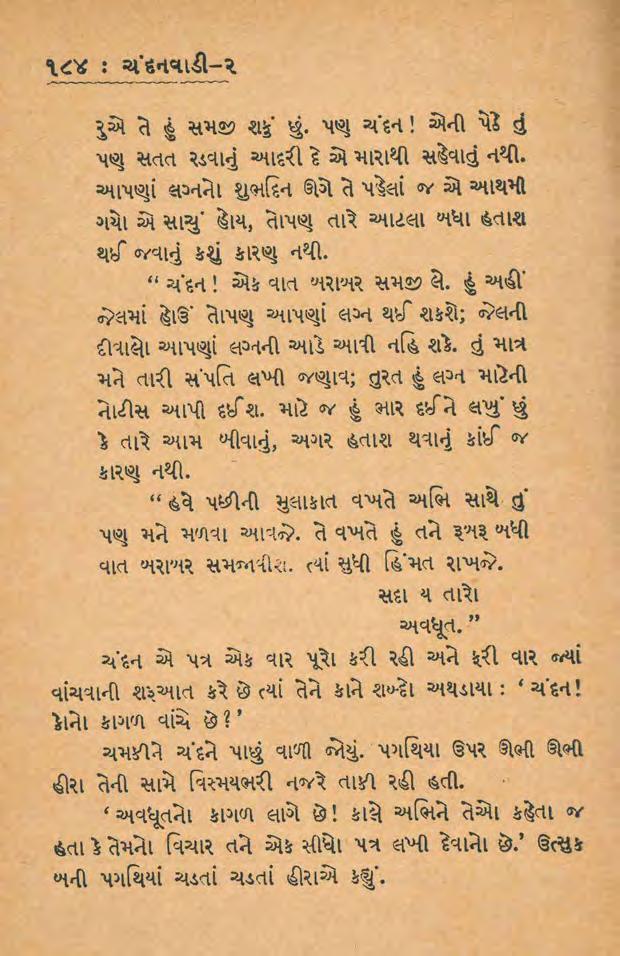 ૧૮૪ : ચંદનવાડી–૨
રુએ તે હું સમજી શકું છું. પણ ચંદન! એની પેઠે તું
પણ સતત રડવાનું આદરી દે એ મારાથી સહેવાતું નથી.
આપણાં લગ્નનો શુભદિન ઊગે તે પહેલાં જ એ આથમી
ગયો એ સાચું હોય, તોપણ તારે આટલા બધા હતાશ
થઈ જવાનું કશું કારણ નથી.
“ ચંદન! એક વાત બરાબર સમજી લે. હું અહીં
જેલમાં હોઉં તોપણ આપણાં લગ્ન થઈ શકશે; જેલની
દીવાલો આપણાં લગ્નની આડે આવી નહિ શકે. તું માત્ર
મને તારી સંપતિ લખી જણાવ; તુરત હું લગ્ન માટેની
નોટીસ આપી દઈશ. માટે જ હું ભાર દઈને લખું છું
કે તારે આમ બીવાનું, અગર હતાશ થવાનું કાંઈ જ
કારણ નથી.
“ હવે પછીની મુલાકાત વખતે અભિ સાથે તું
પણ મને મળવા આવજે. તે વખતે હું તને રૂબરૂ બધી
વાત બરાબર સમજાવીશ. ત્યાં સુધી હિંમત રાખજે.
સદા ય તારો
અવધૂત.”
ચંદન એ પત્ર એક વાર પૂરો કરી રહી અને ફરી વાર જ્યાં
વાંચવાની શરૂઆત કરે છે ત્યાં તેને કાને શબ્દો અથડાયા : ‘ ચંદન!
કોનો કાગળ વાંચે છે?’
ચમકીને ચંદને પાછું વાળી જોયું. પગથિયા ઉપર ઊભી ઊભી
હીરા તેની સામે વિસ્મયભરી નજરે તાકી રહી હતી.
‘ અવધૂતનો કાગળ લાગે છે! કાલે અભિને તેઓ કહેતા જ
હતા કે તેમનો વિચાર તને એક સીધો પત્ર લખી દેવાનો છે.’ ઉત્સુક
બની પગથિયાં ચડતાં ચડતાં હીરાએ કહ્યું.